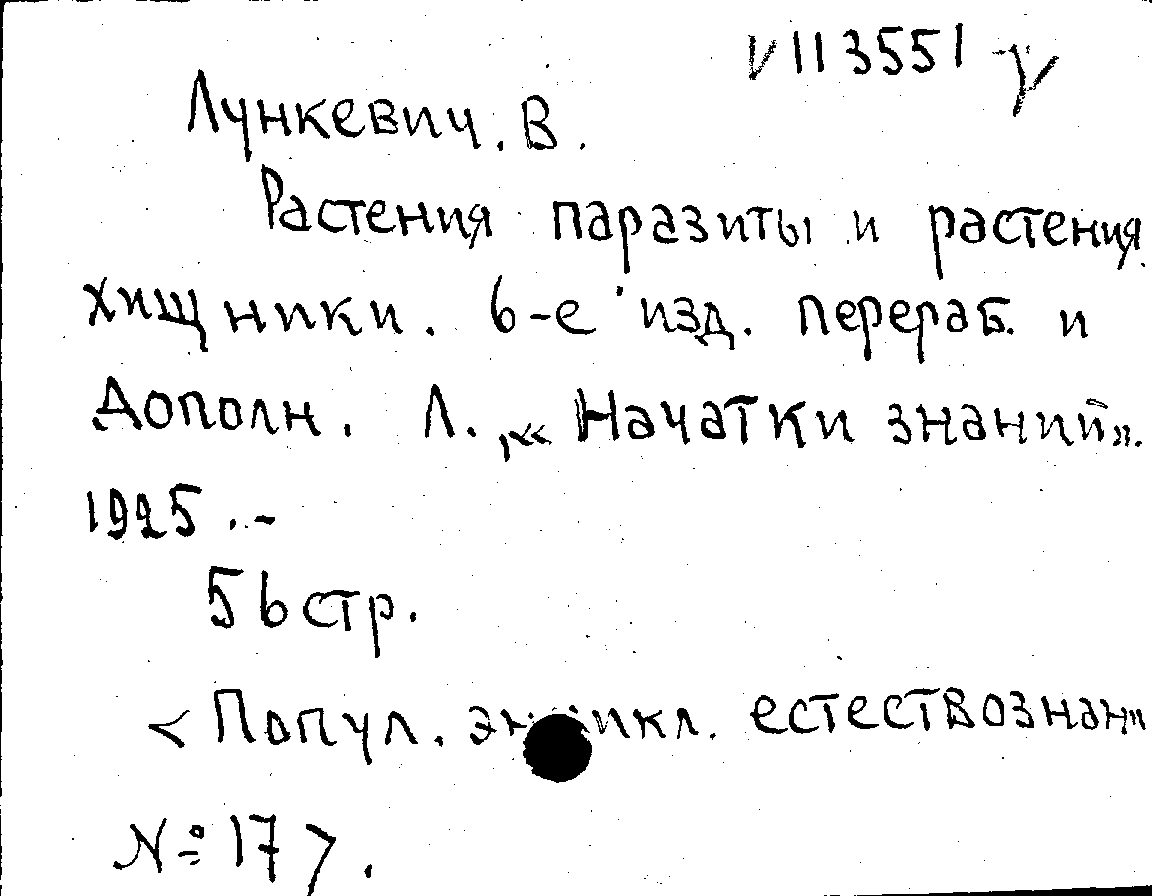 V113551
Лункевич. В.
Растения паразиты и растения
хищники. 6-е изд. перераб. и
дополн. Л., "Начатки знаний".
1925.-
56 стр.
< Попул. энцикл. естествознан"
№ 17 >.